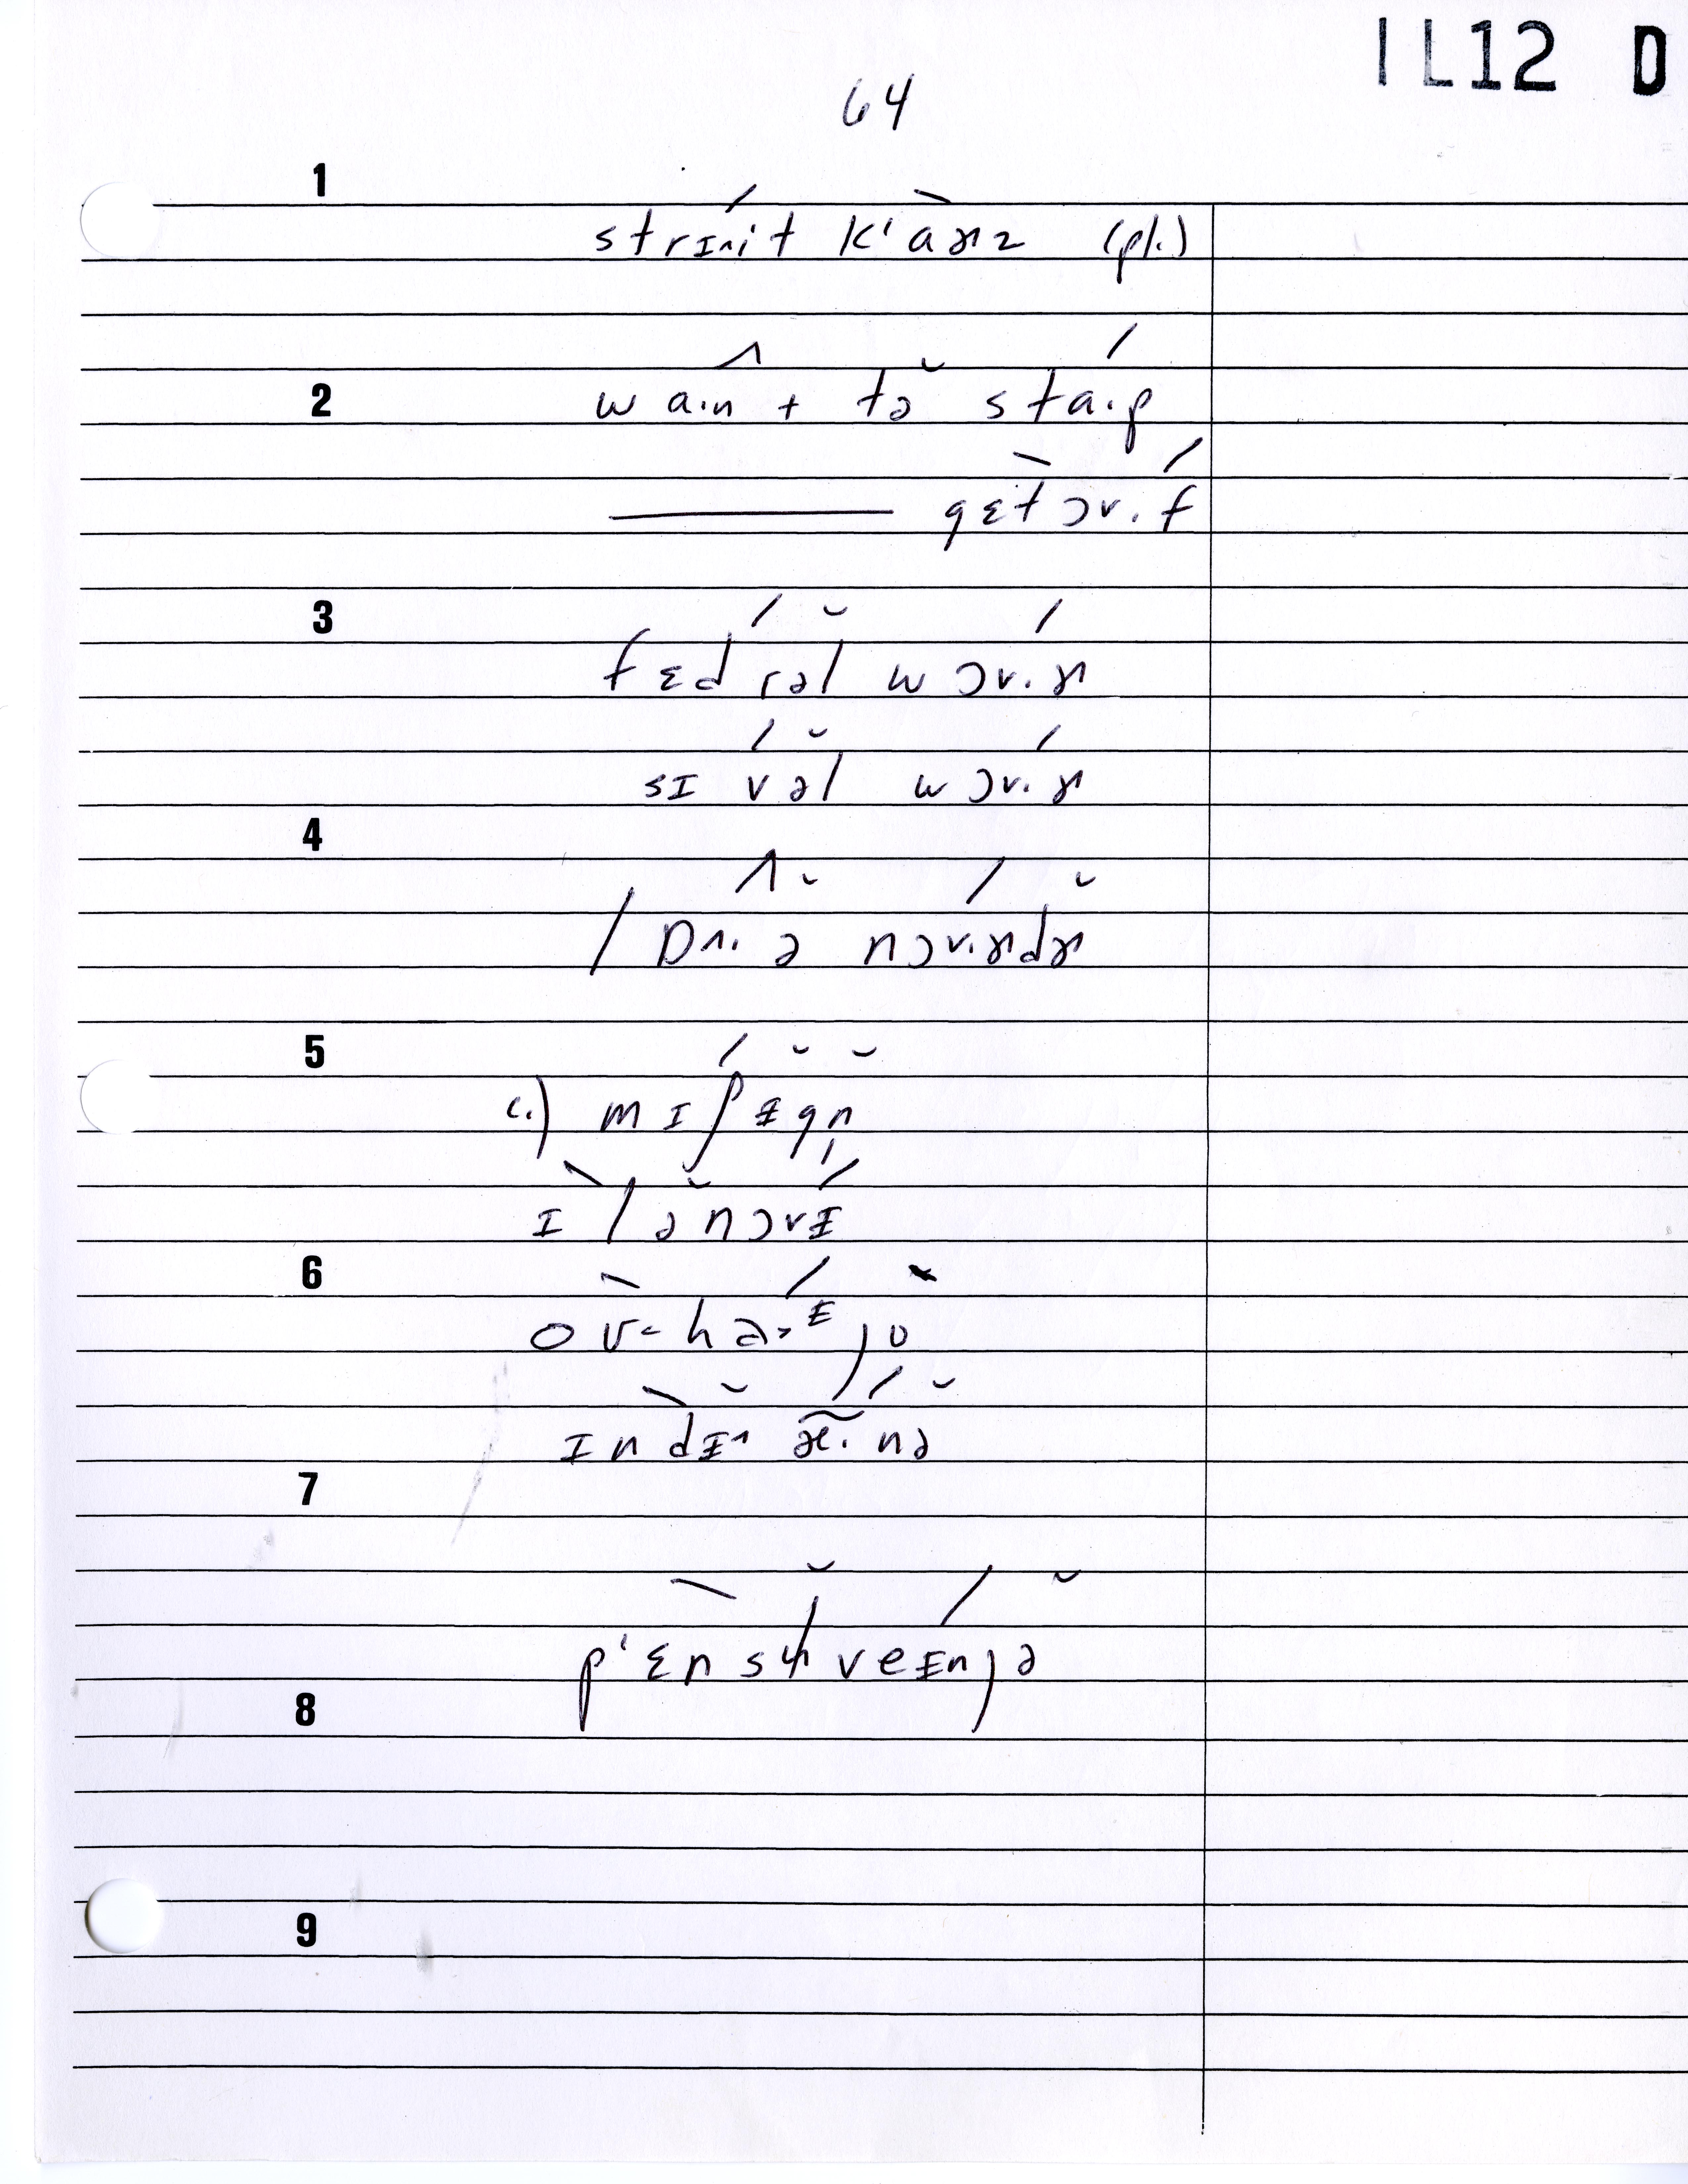 IL12 D
64
1
strɪ˄i·t k'aɚz (pl.)
2
wa·n t tə sta·p
gɛt ɔ˅·f
3
fɛdrəl wɔ˅·ɚ
sɪvəl wɔ˅·ɚ
4
lɒ˄·ə nɔ˅·ɚdɚ
5
c.) mɪʃɪgn̩
ɪlənɔ˅ɪ
6
ohaɪo
ɪndɪ˄æ̃·nə
7
p'ɛnsɫ̩veɪnjə
8
9